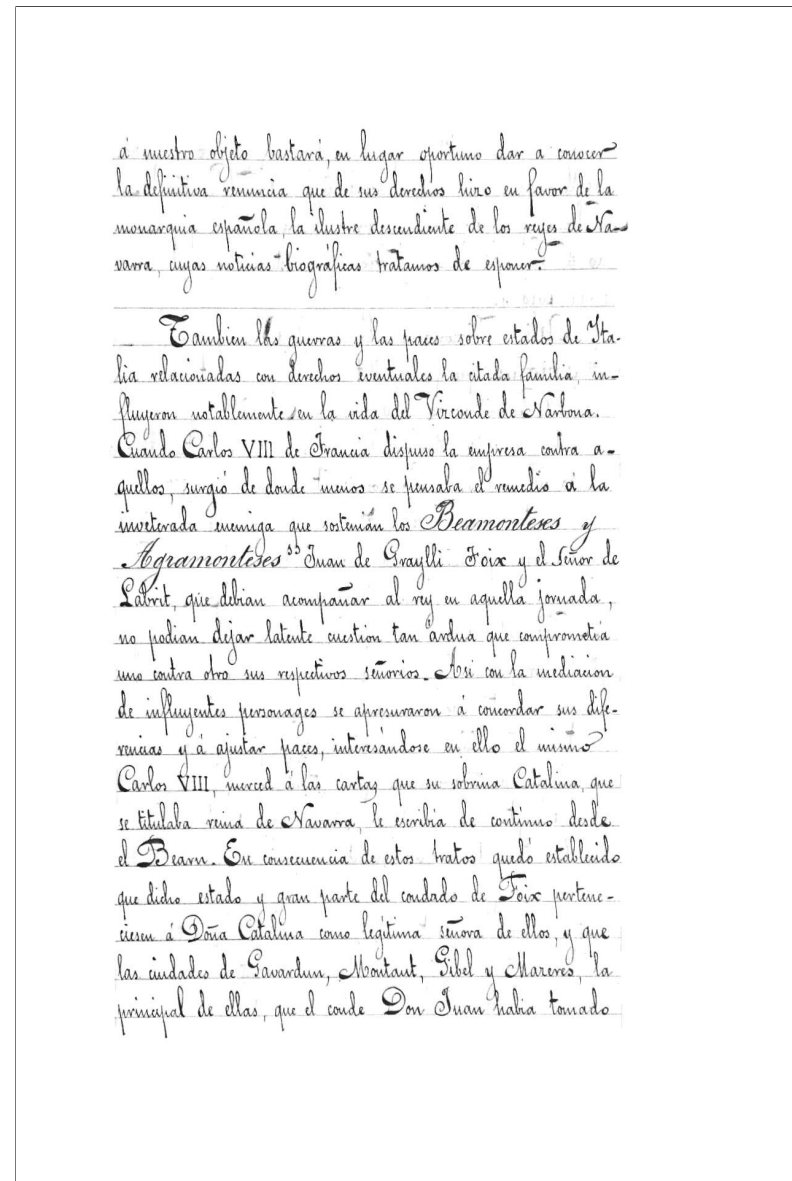 á nuestro objeto bastará, en lugar oportuno dar a conocer
la definitiva renuncia que de sus derechos hizo en favor de la
monarquia española, la ilustre descendiente de los reyes de Na-
varra, cuyas noticias biográficas tratamos de esponer.
Tambien las guerras y las paces sobre estados de Ita-
lia relacionadas con derechos eventuales la citada familia, in-
fluyeron notablemente en la vida del Virconde de Narbona.
Cuando Carlos VIII de Francia dispuso la empresa contra a-
quellos, surgió de donde menos se pensaba el remedio á la
inveterada enemiga que sostenian los Beamonteses y
Agramonteses " Juan de Graylli Foix y el Señor de
Labrit, que debian acompañar al rey en aquella jornada,
no podian dejar latente cuestion tan ardua que comprometiá
uno contra otro sus respectivos señorios. Asi con la mediacion
de influyentes personages se apresuraron á concordar sus dife-
rencias y á ajustar paces, interesándose en ello el mismo
Carlos VIII, merced á las cartas que su sobrina Catalina, que
se titulaba reina de Navarra, le escribia de continuo desde
el Bearn. En consecuencia de estos tratos quedó establecido
que dicho estado y gran parte del condado de Foix pertene-
ciesen á Doña Catalina como legítima señora de ellos, y que
las ciudades de Gavardun, Montaut, Gibel y Mazeres, la
principal de ellas, que el conde Don Juan habia tomado